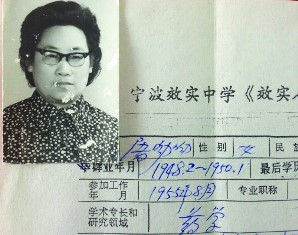 宁波效实中学《效实
性别 女 民族
毕肄业年月 1948.2—1950.1 最后学历
参加工作年月 1955年8月 专业职称
学术专长和研究领域 药学